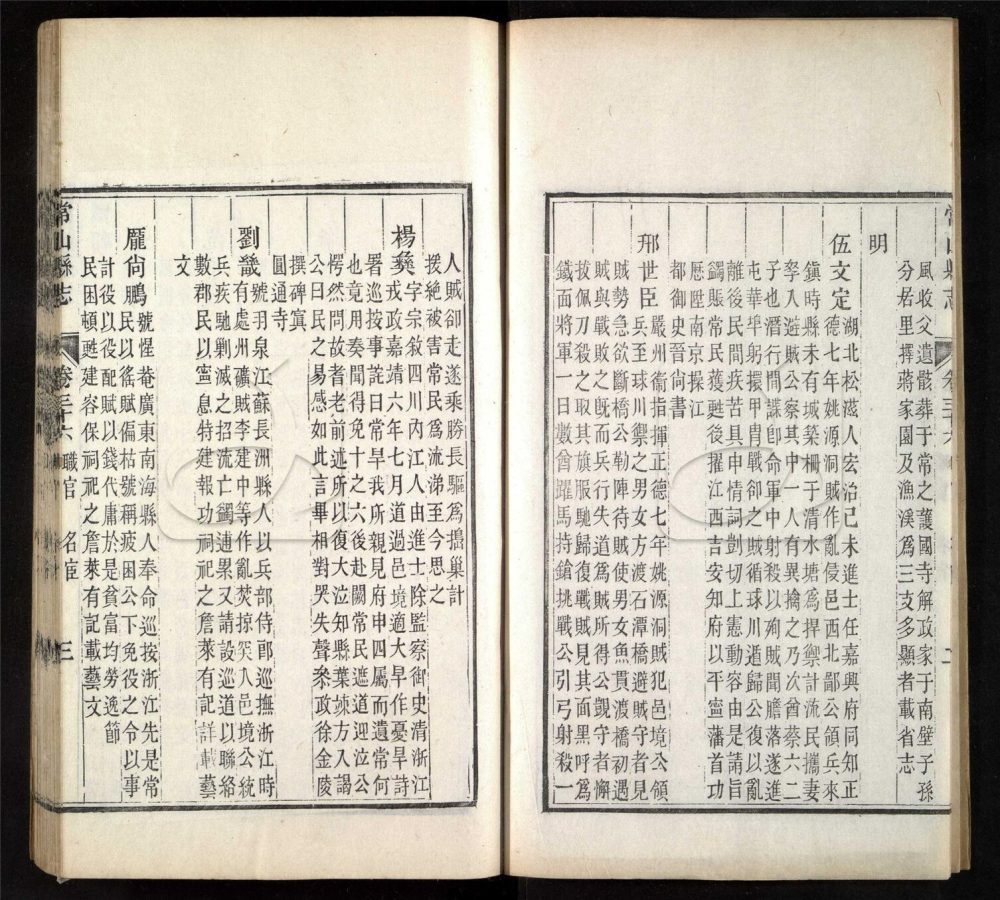 風收父遺骸葬于常之護國寺解政家于南壁子孫
分居里擇蔣家園及漁溪為三支多顯者載省志
明
伍文定湖北松滋人宏治己未進士任嘉興府同知正
德七年姚源洞賊作亂侵邑西北鄙公領兵來
鎮時縣未有城築柵于清水塘為捍禦計流民攜妻
孥人避賊公察其中一人有異擒之乃次酋蔡六二
子也潛行間諜卽命軍中射殺以殉賊聞膽落遂進
屯華埠躬擐甲冑戰卻之賊循球川遁歸公復以亂
離後民間疾苦具申情詞剴切上憲動容由是請旨
蠲賬常民獲甦後擢江西吉安知府以平寧藩首功
歷陞南京操江
都御史晉尚書
邢世臣嚴州衞指揮正德七年姚源洞賊犯邑境公領
兵至球川禦之男女方渡石潭橋避賊守者見
賊勢急欲斷橋公勒陣待賊使男女魚貫渡橋初遇
賊與戰敗之旣而兵行失道為賊所得公觀守者懈
拔佩刀殺之取其旗服馳歸復戰賊見其面黑呼為
鐵面將軍一日數酋躍馬持鎗挑戰公引弓射殺一
人賊卻走遂乘勝長驅為擣巢計
援絕被害常民為流涕至今思之
楊彞字宗敘四川內江人由進士除監察御史清浙江
戎政嘉靖六年七月道過邑境適大旱作憂旱詩
署巡按事詫日常旱我所親見府申四屬而遺常何
也竟用奏聞得免十之六後赴闕常民遮道迎泣公
愕然問故者老前述所以復大泣知縣葉竦方入謁
公曰民之易感如此言畢相對哭失聲叅政徐金陵
撰碑寘
圓通寺
劉畿號羽泉江蘇長洲縣人以兵部侍郎巡撫浙江時
有處州礦賊李建中等作亂焚掠突入邑境公統
兵疾馳剿滅之招流亡蠲逋累又請設巡道以聯絡
數郡民以寧息特建報功祠祀之詹萊有記詳載藝
文
龐尚鵬號惺菴廣東南海縣人奉命巡按浙江先是常
民以徭賦偏枯號稱疲困公下免役之令以事
計役以役配賦以錢代庸於是貧富均勞逸節
民困頓甦建容保祠祀之詹萊有記載藝文
常山縣志
卷三十六
職官
名宦
三